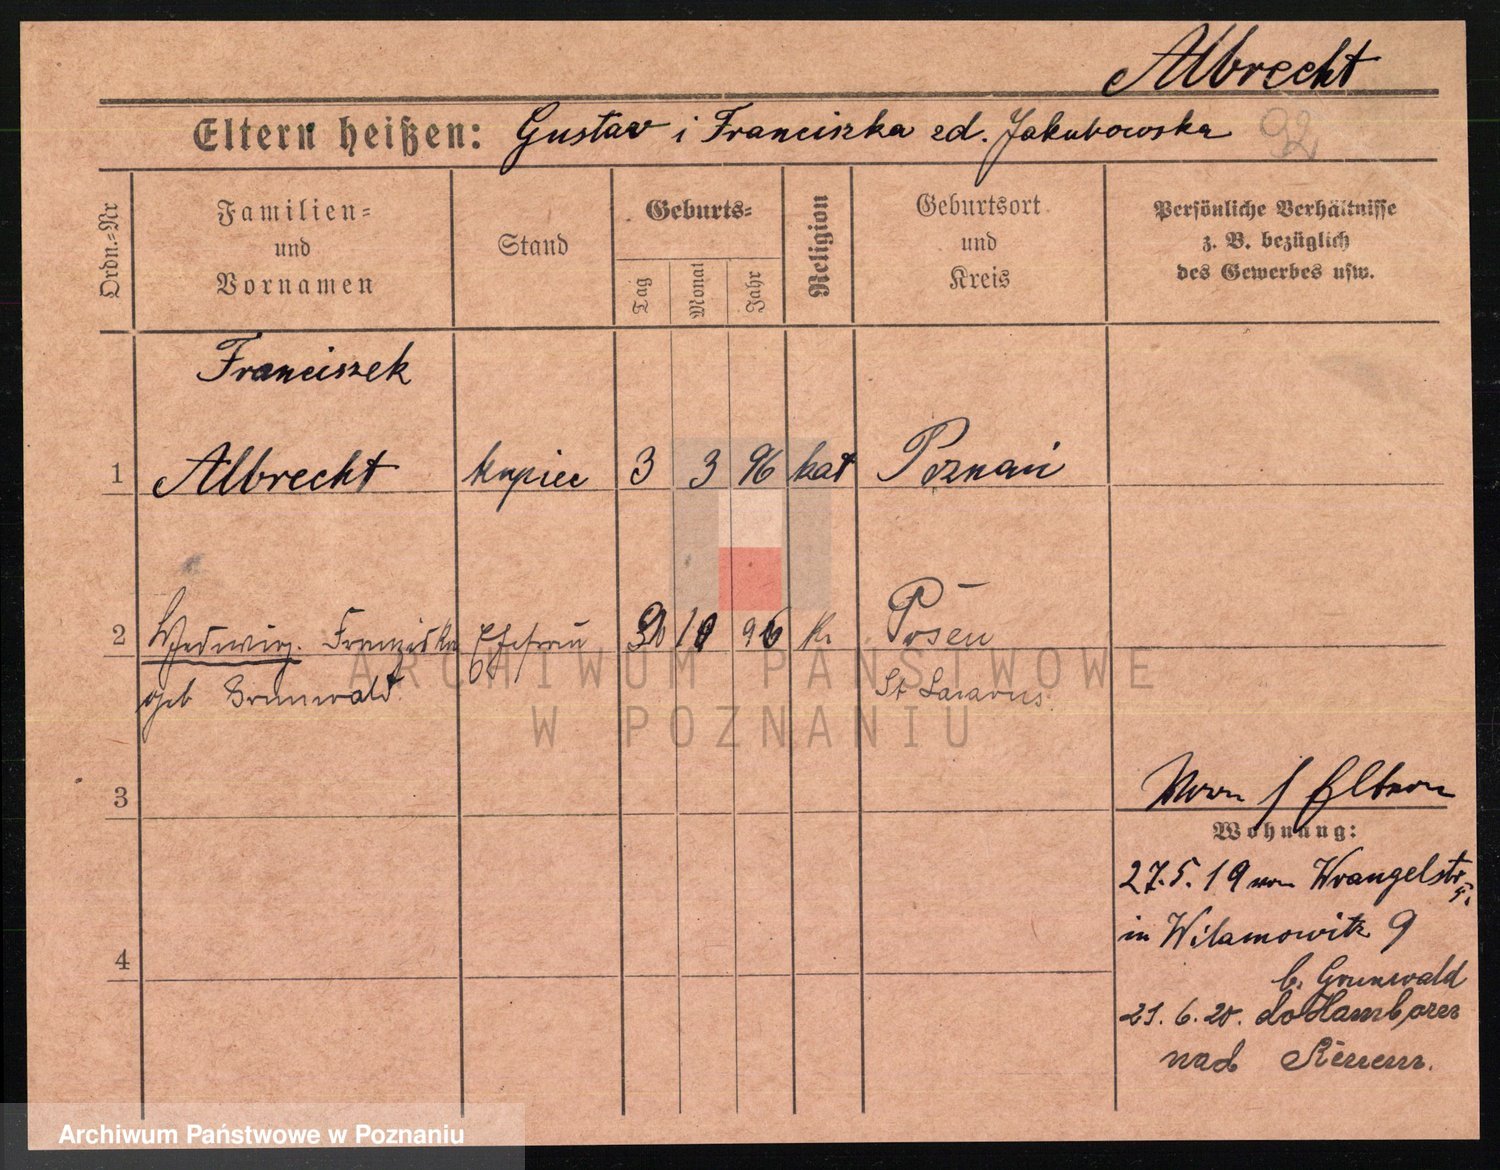 Albrecht
Eltern heißen: Gustav i Franciszka zd. Jakubowska
92
Ordn.-Nr
Familien-
und
Vornamen
Stand
Geburts-
Tag
Monat
Jahr
Religion
Geburtsort
und
Kreis
Persönliche Verhältnisse
z. B. bezüglich
des Gewerbes usw.
Franciszek
1 Albrecht kupiec 3 3 96 kat Poznań
2 Hedwig Franziska Ehefrau 10 96 k. Posen
geb Grunwald St Lazarus.
3
Eltern
Wohnung:
27.5.19 von Wrangelstr
in Wilamowitz 9
b. Grunwald
21.6.20. do Hamborn
nad Renem.
4
ARCHIWUM PAŃSTWOWE
W POZNANIU
Archiwum Państwowe w Poznaniu